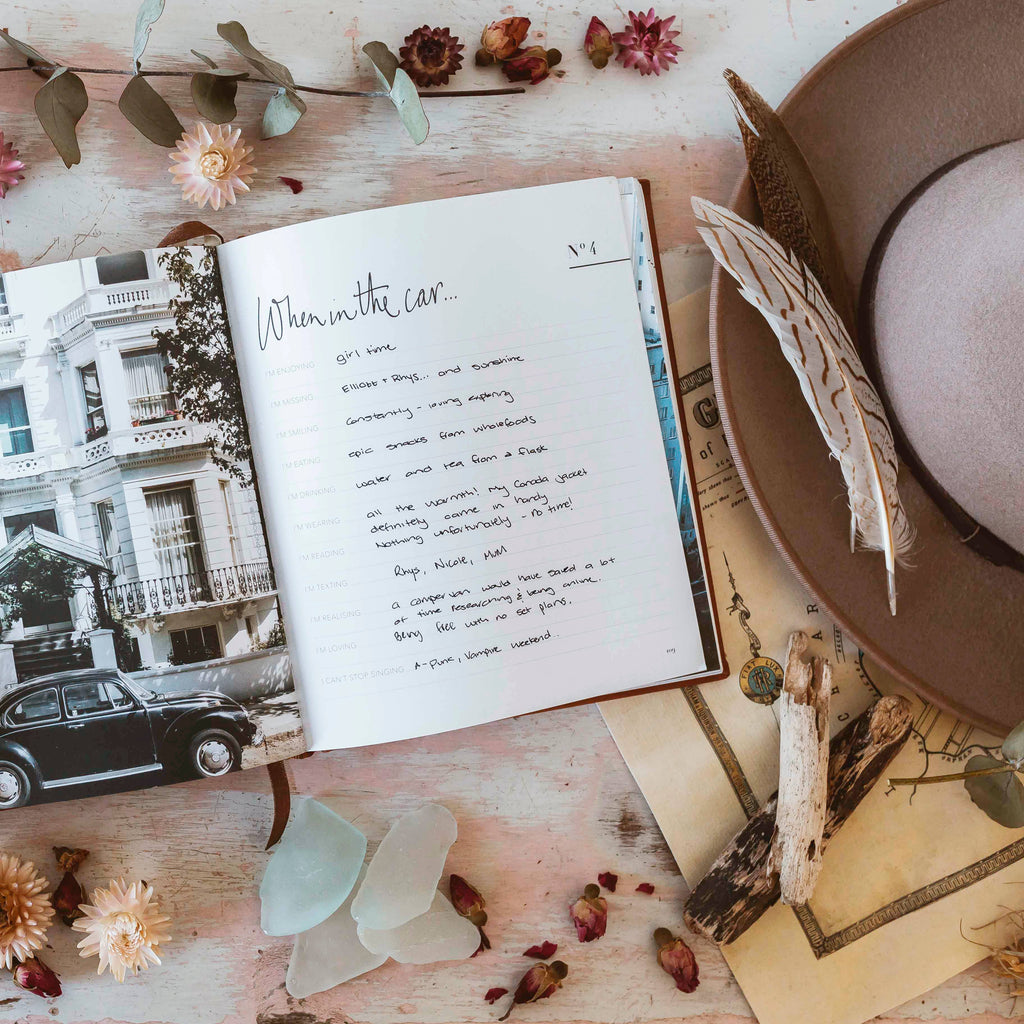 Nº 4
When in the car...
I'M ENJOYING girl time
I'M MISSING Elliott + Rhys... and sunshine
I'M SMILING constantly - loving exploring
I'M EATING epic snacks from wholefoods
I'M DRINKING water and tea from a flask
I'M WEARING all the warmth! My Canada jacket
definitely came in handy
I'M READING Nothing unfortunately - no time!
I'M TEXTING Rhys, Nicole, Mum
I'M REALISING a campervan would have saved a lot
of time researching & being online.
I'M LOVING Being free with no set plans.
I CAN'T STOP SINGING A-Punk, Vampire Weekend..
G
of
FIAT LUX